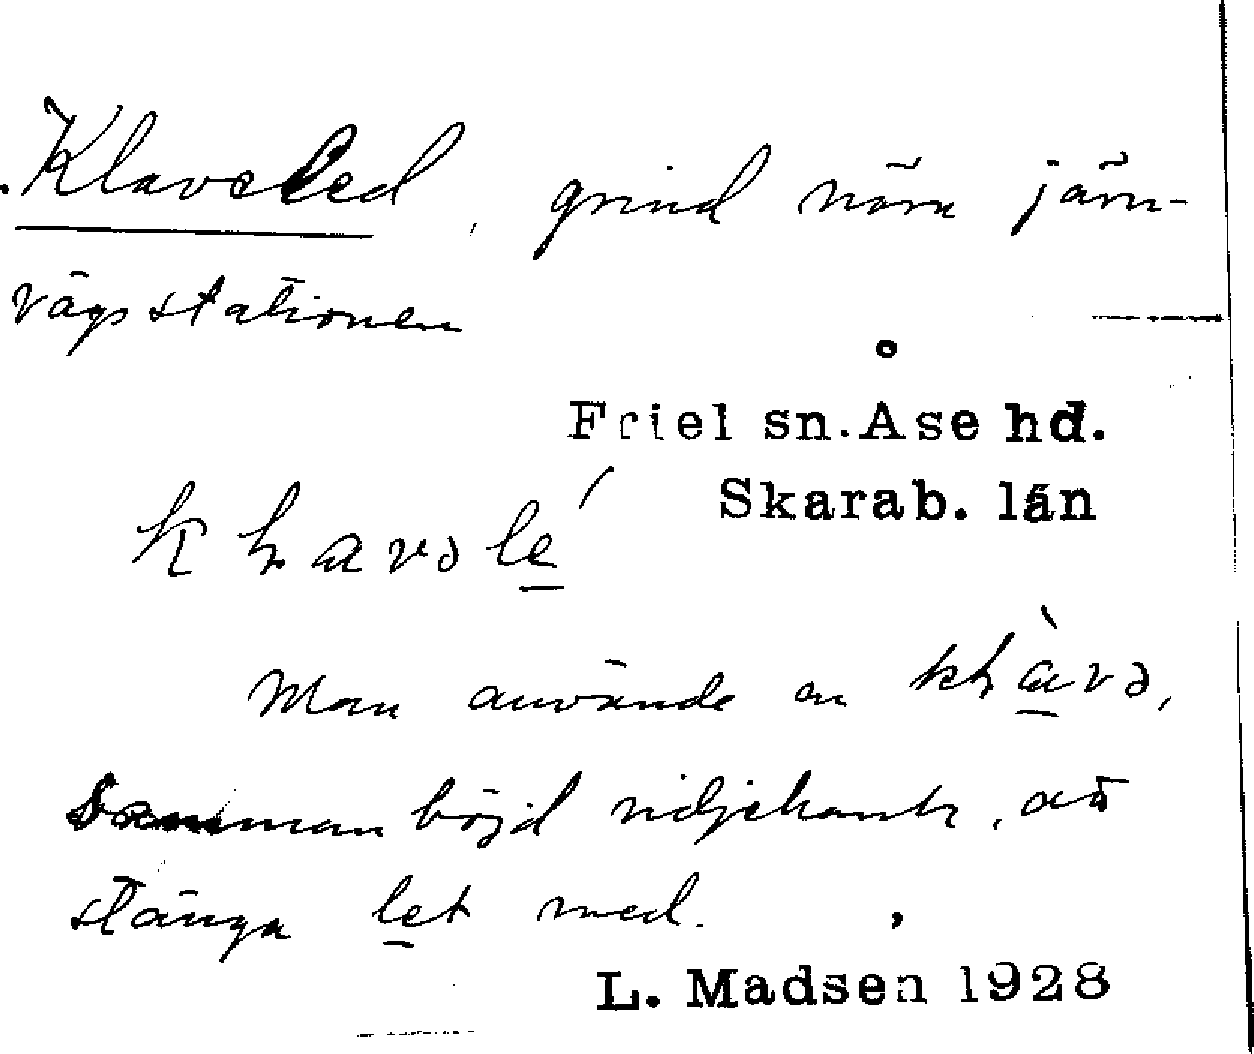 Klaveled, grind nära järn-
vägsstationen
Friel sn. Åse hd.
Skarab. län
Man använde en
samman böjd vidjehank, att
stänga let med.
L. Madsen 1928